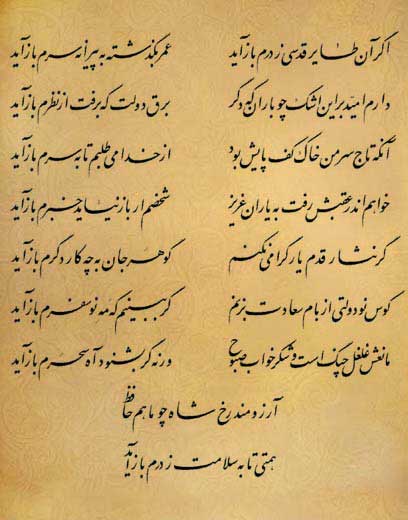 اگر آن طایر قدسی ز درم بازآید عمر بگذشته به پیرانه سرم بازآید
دارم امید بر این اشک چو باران که دگر برق دولت که برفت از نظرم بازآید
آنکه تاج سر من خاک کف پایش بود از خدا می طلبم تا به سرم بازآید
خواهم اندر عقبش رفت به یاران عزیز شخصم ار باز نیاید خبرم بازآید
گر نثار قدم یار گرامی نکنم گوهر جان به چه کار دگرم بازآید
کوس نو دولتی از بام سعادت بزنم گر ببینم که مه نو سفرم بازآید
مانعش غلغل چنگ است و شکر خواب صبوح ورنه گر بشنود آه سحرم بازآید
آرزومند رخ شاه چو ماهم حافظ
همتی تا به سلامت ز درم بازآید